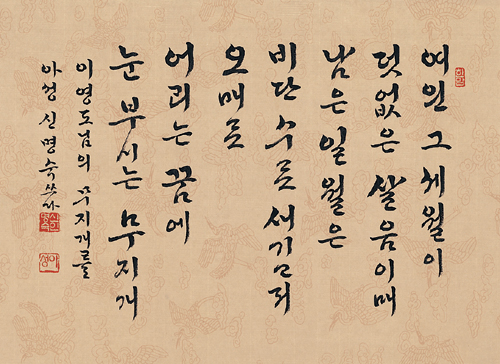 여읜 그 세월이
덧없은 살음이매
남은 일월은
비단 수로 새기고저
오매로
어리는 꿈에
눈 부시는 무지개
이영도님의 무지개를
신명숙 쓰다